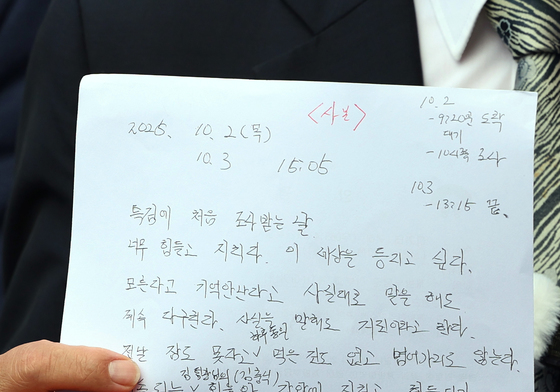 <사본>
2025. 10. 2(목)
10. 3 15:05
10. 2
- 9:20 도착
대기
- 10시쪽 조사
10.3
- 13:15 끝.
특검에 처음 조사받는 날
너무 힘들고 지치다. 이 세상을 등지고 싶다.
모른다고 기억안난다고 사실대로 말을 해도
계속 다구친다. 사실을 말해도 거짓이라고 한다.
전날 잠도 못자고 먹은 것도 없고 넘어가지도 않는다.
힘들 지치고 힘들다